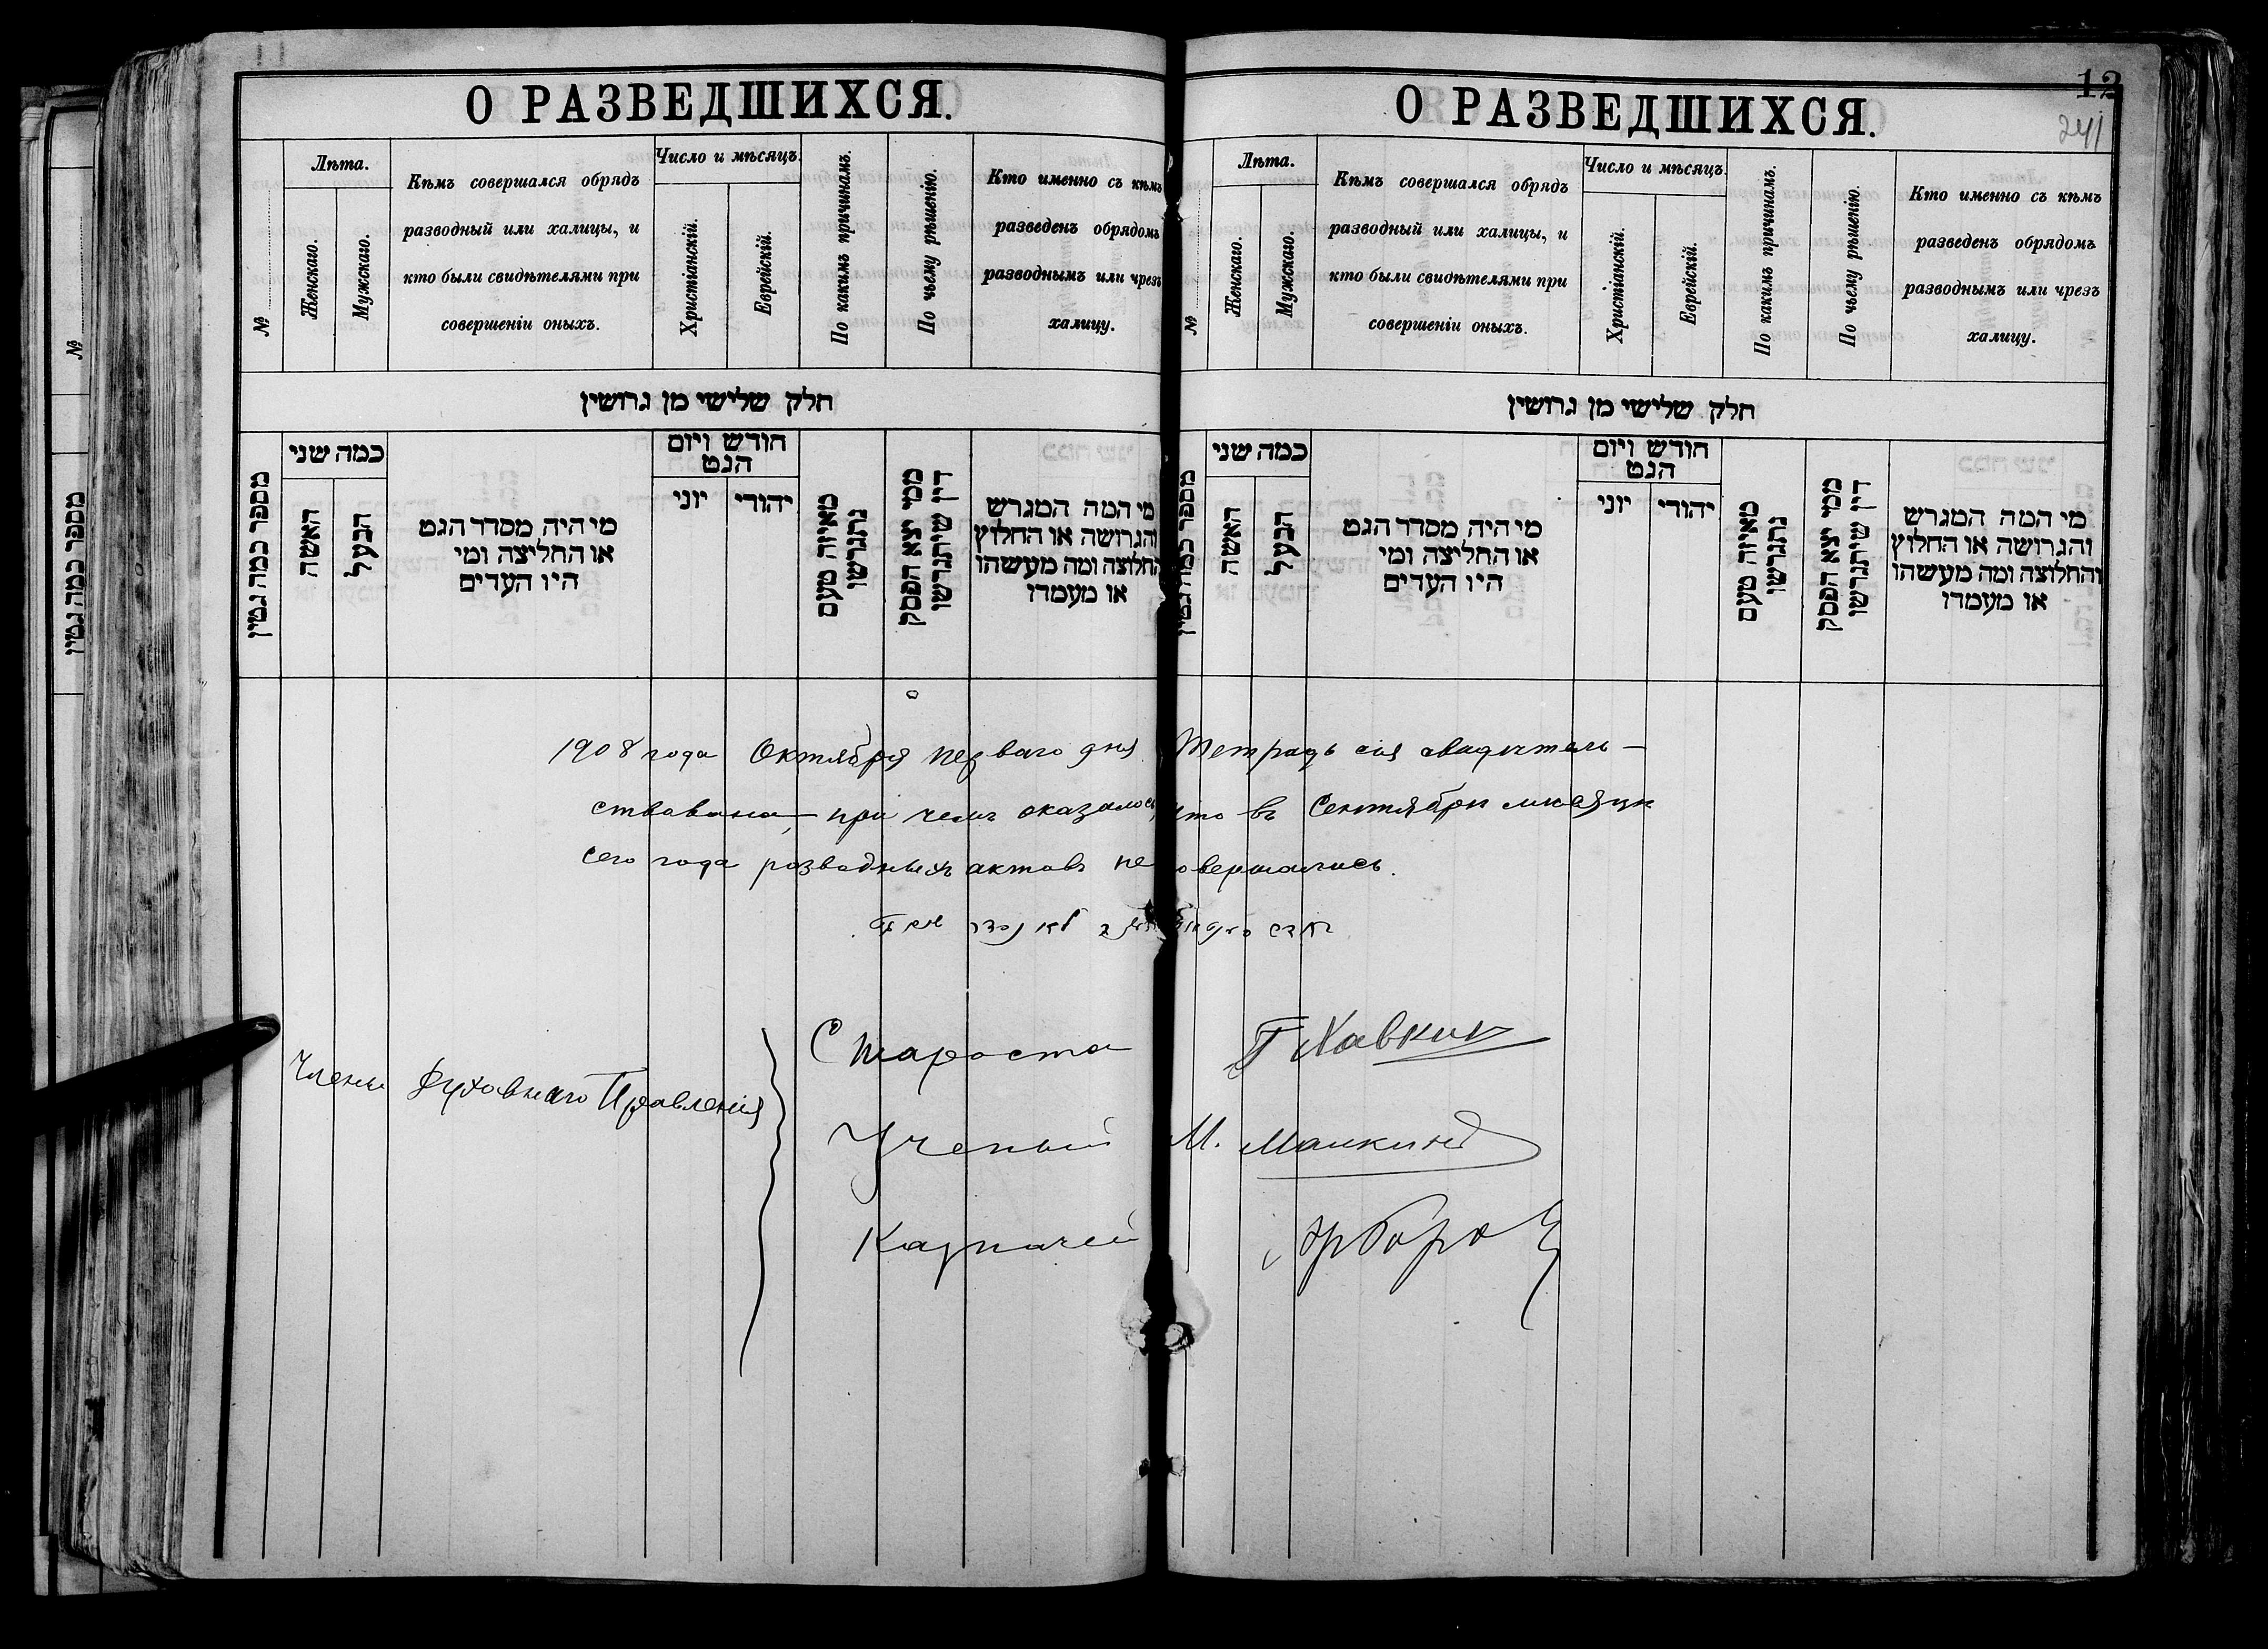 О РАЗВЕДШИХСЯ.
№
Лѣта.
Женскаго.
Мужскаго.
Кѣмъ совершался обрядъ
разводный или халицы, и
кто были свидѣтелями при
совершеніи оныхъ.
Число и мѣсяцъ.
Христіанскій.
Еврейскій.
По какимъ причинамъ.
По чьему рѣшенію.
Кто именно съ кѣмъ
разведенъ обрядомъ
разводнымъ или чрезъ
халицу.
חלק שלישי מן גרושין
מספר כמה גטין
כמה שני
האשה
הבעל
מי היה מסדר הגט
או החליצה ומי
היו העדים
חודש ויום
הגט
יוני
יהודי
מאיזה טעם
נתגרשו
ממי יצא הפסק
דין שיתגרשו
מי המה המגרש
והגרושה או החלוץ
והחלוצה ומה מעשהו
או מעמדו
12
241
О РАЗВЕДШИХСЯ.
№
Лѣта.
Женскаго.
Мужскаго.
Кѣмъ совершался обрядъ
разводный или халицы, и
кто были свидѣтелями при
совершеніи оныхъ.
Число и мѣсяцъ.
Христіанскій.
Еврейскій.
По какимъ причинамъ.
По чьему рѣшенію.
Кто именно съ кѣмъ
разведенъ обрядомъ
разводнымъ или чрезъ
халицу.
חלק שלישי מן גרושין
מספר כמה גטין
כמה שני
האשה
הבעל
מי היה מסדר הגט
או החליצה ומי
היו העדים
חודש ויום
הגט
יוני
יהודי
מאיזה טעם
נתגרשו
ממי יצא הפסק
דין שיתגרשו
מי המה המגרש
והגרושה או החלוץ
והחלוצה ומה מעשהו
או מעמדו
1908 года Октября перваго дня Тетрадь сія свидѣтель-
ствована, при чемъ оказалось, что въ Сентябрѣ мѣсяцѣ
сего года разводныхъ актовъ не совершалось.
Члены Духовнаго Правленія
Староста Г Хавкин
Ученый М. Маикинъ
Казначей
№
מספר כמה גטין